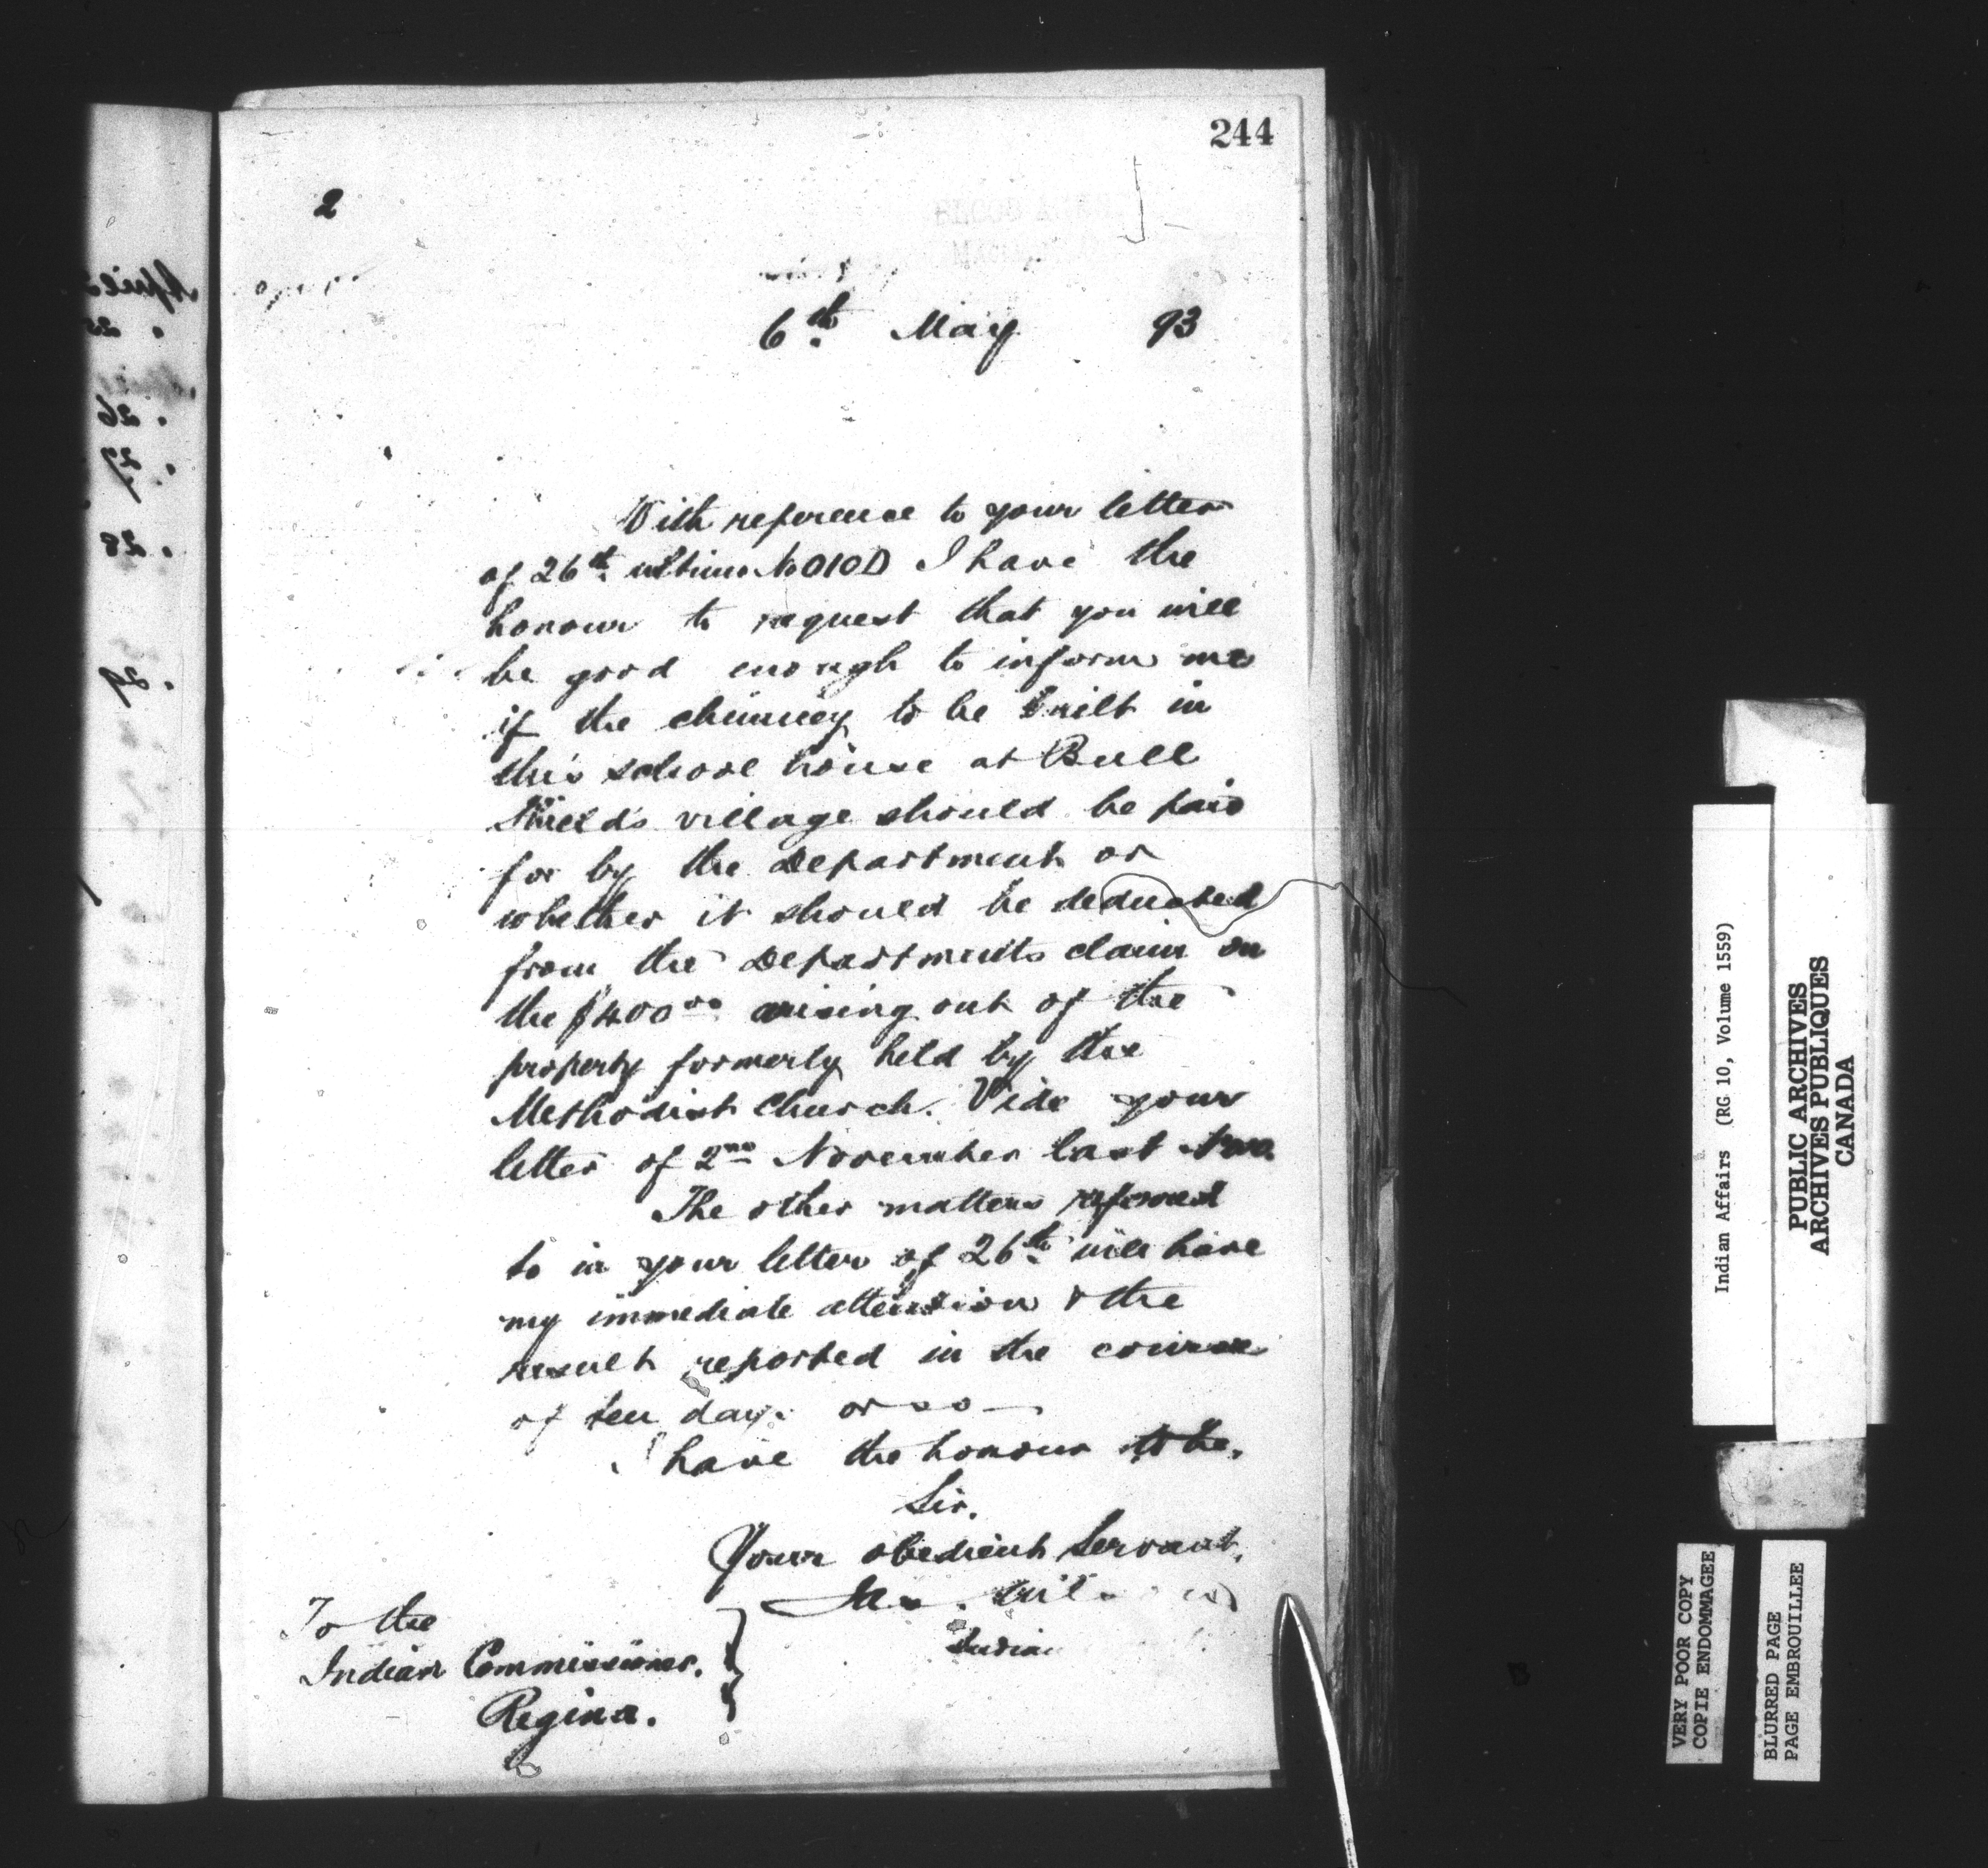 244
2
BLOOD
6th May 93
With reference to your letter
of 26th ultimo No 010D I have the
honour to request that you will
be good enough to inform me
if the chimney to be built in
this school house at Bull
Shield's village should be paid
for by the Department or
whether it should be deducted
from the Departments claim on
the $400.00 arising out of the
property formerly held by the
Methodist Church. Vide your
letter of 2nd November last
The other matters referred
to in your letter of 26th will have
my immediate attention & the
result reported in the course
of ten days or so —
I have the honour to be,
Sir,
Your obedient Servant,
Indian
To the
Indian Commissioner,
Regina.
April
26
27
28
29
Indian Affairs (RG 10, Volume 1559)
PUBLIC ARCHIVES
ARCHIVES PUBLIQUES
CANADA
VERY POOR COPY
COPIE ENDOMMAGEE
BLURRED PAGE
PAGE EMBROUILLEE